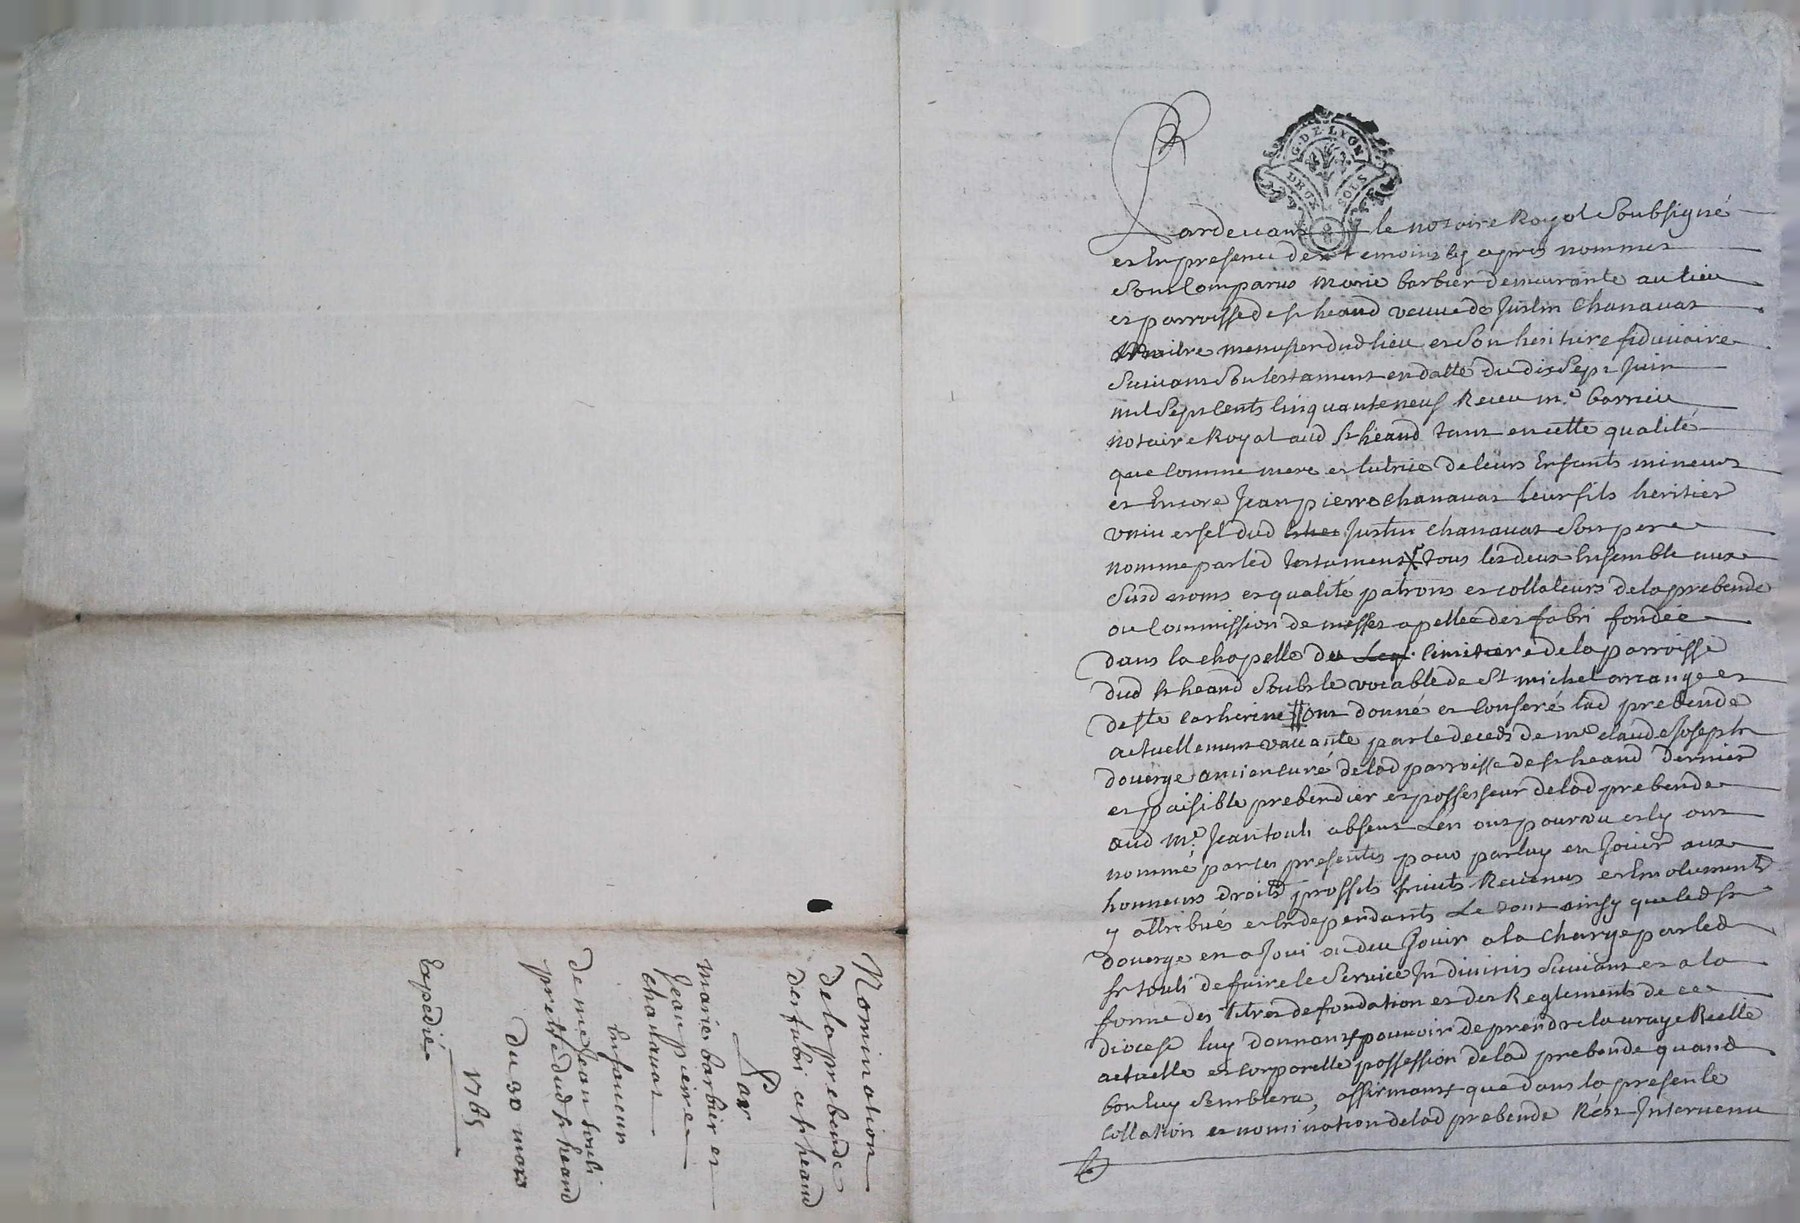 G. DE LYON
DEUX SOLS
Pardevant le notaire Royal Soubsigné
et En presence des temoins cy apres nommes
Sont Comparus marie barbier demeurante au lieu
et parroisse de st heand veuve de Justin Chanavat
maitre menusier dud lieu et Son heritiere fiduciaire
Suivant Son testament en datte du dix Sept Juin
mil Sept Cents Cinquante neuf Receu me barrieu
notaire Royal aud st heand tant en cette qualité
que Comme mere et tutrice de leurs Enfants mineurs
et Encore Jean pierre chanavat leur fils heritier
universel dud Justin chanavat Son pere
nomme par led testament tous les deux Ensemble aux
Susd noms et qualité patrons et collateurs de la prebende
ou Commission de messes apellée des fabri fondée
dans la chapelle du cimetiere de la parroisse
dud st heand Soubs le vocable de st michel arcange et
de ste Catherine ont donné et Conferé lad prebende
actuellement vacante par le deceds de me claude Joseph
douerge ancien curé de lad parroisse de st heand dernier
et paisible prebendier et possesseur de lad prebende
aud me. Jean touli absent L'en ont pourvu et ly ont
nommé par ces presentes pour par luy en Jouir aux
honneurs droits proffits fruits Revenus et Emoluments
y attribués et En dependants Le tout ainsy que led sr
douerge en a Joui ou deu Jouir a la Charge par led
sr touli de faire le Service In divinis Suivant et a la
forme des titres de fondation et des Reglements de ce
diocese luy donnant pouvoir de prendre la vraye Reelle
actuelle et corporelle possession de lad prebende quand
bon luy Semblera, affirmant que dans la presente
Collation et nomination de lad prebende N'est Intervenu
Nomination
de la prebende
des fabri a st heand
Par
marie barbier et
Jean pierre
chanavat
En faveur
de me Jean touli
prettre dud st heand
du 30 mars
1765
Expedié